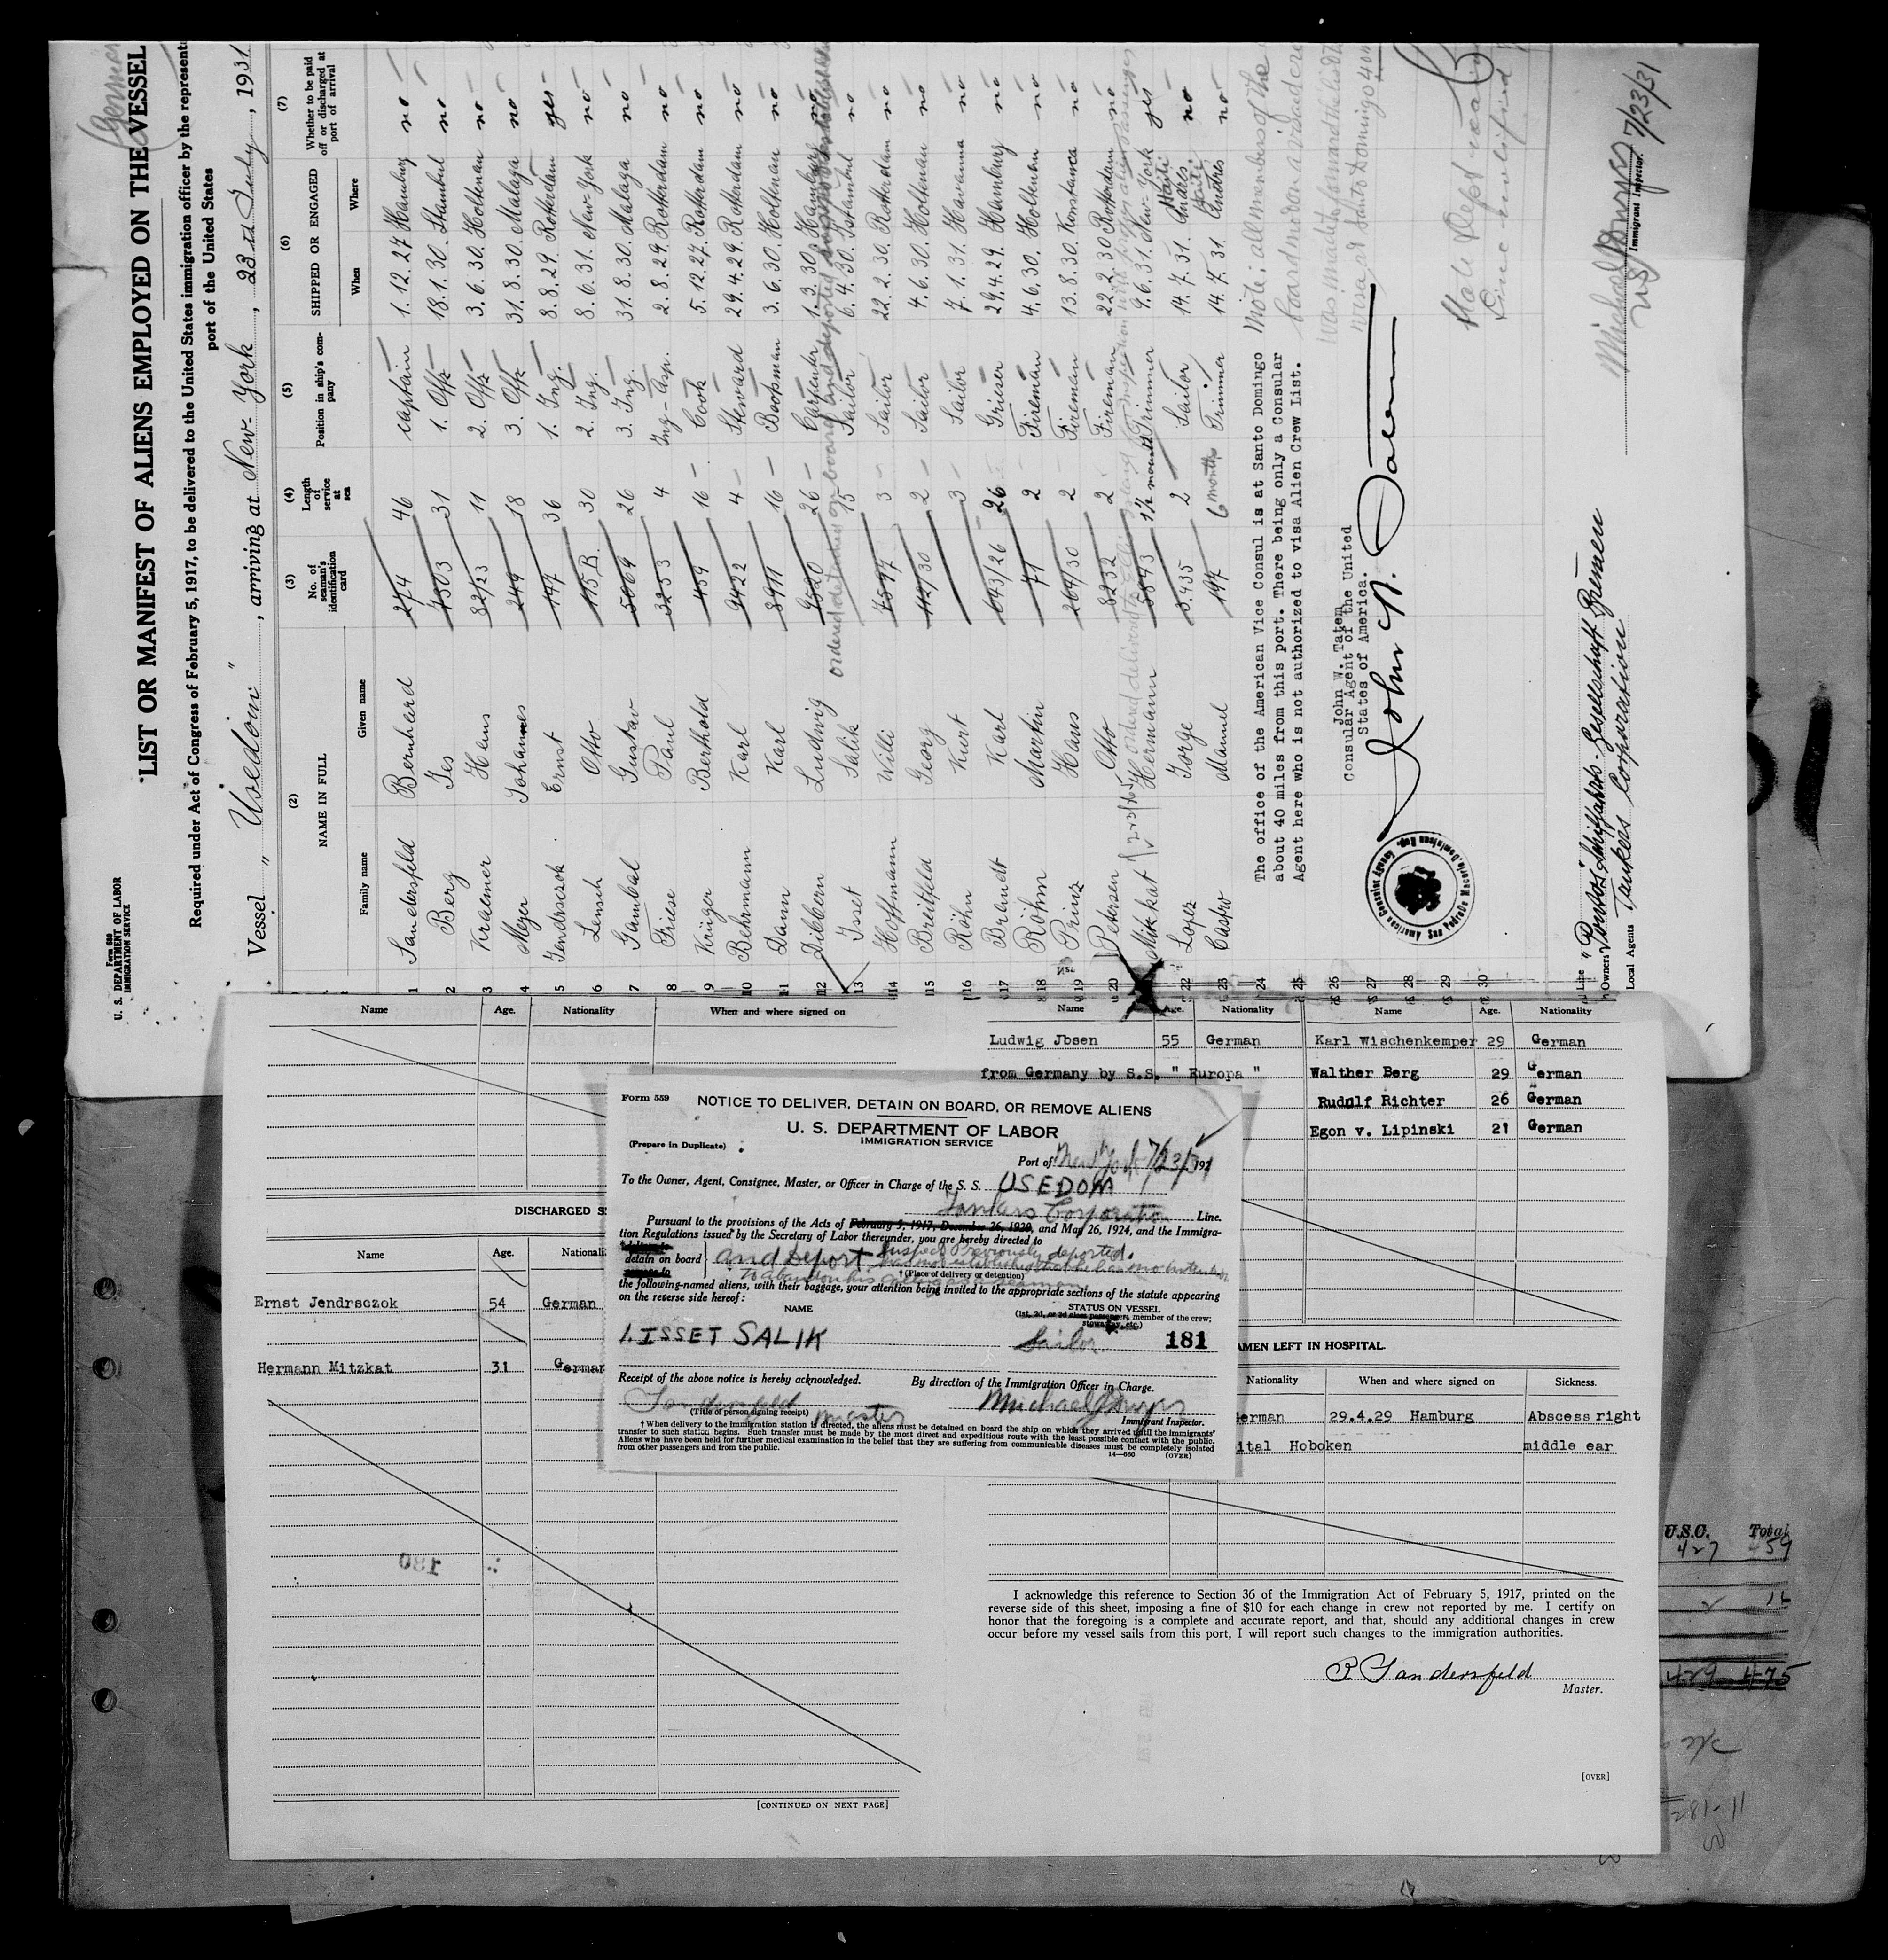 German
LIST OR MANIFEST OF ALIENS EMPLOYED ON THE VESSEL
Form 680
U. S. DEPARTMENT OF LABOR
IMMIGRATION SERVICE
Required under Act of Congress of February 5, 1917, to be delivered to the United States immigration officer by the represent
port of the United States
Vessel " Usedom " , arriving at New-York , 23rd July , 1931
(2) (3) (4) (5) (6) (7)
NAME IN FULL No. of seaman's identification card Length of service at sea Position in ship's company SHIPPED OR ENGAGED Whether to be paid off or discharged at port of arrival
Family name Given name When Where
1 Sandersfeld Bernhard 274 46 captain 1.12.27 Hamburg no
2 Berg Jes 7303 31 1. Offz 18.1.30. Stambul no
3 Kraemer Hans 82/23 11 2. Offz 3.6.30. Holtenau no
4 Meyer Johannes 249 18 3. Offz 31.8.30. Malaga no
5 Jendrsczok Ernst 147 36 1. Ing. 8.8.29. Rotterdam yes
6 Lensch Otto 115 B. 30 2. Ing. 8.6.31. New-York no
7 Gambal Gustav 5069 26 3. Ing. 31.8.30. Malaga no
8 Friese Paul 3253 4 Ing-Asp. 2.8.29. Rotterdam no
9 Krüger Berthold 459 16 Cook 5.12.27. Rotterdam no
10 Behrmann Karl 9422 4 Steward 29.4.29. Rotterdam no
11 Dann Karl 8911 16 Bootsman 3.6.30. Holtenau no
12 Dibbern Ludwig 9520 26 Carpenter 1.3.30. Hamburg no
ordered detained on board and deported
13 Isset Salik 15 Sailor 6.4.30. Istambul no
14 Hoffmann Willi 7597 3 Sailor 22.2.30. Rotterdam no
15 Breitfeld Georg 112/30 2 Sailor 4.6.30. Holtenau no
16 Röhn Kurt 3 Sailor 7.1.31. Havanna no
17 Brandt Karl 643/26 26 Grieser 29.4.29. Hamburg no
18 Röhm Martin 71 2 Fireman 4.6.30. Holtenau no
19 Prinz Hans 264/30 2 Fireman 13.8.30 Konstanca no
20 Petersen Otto 8232 2 Fireman 22.2.30 Rotterdam no
Mitzkat Hermann 5893 1½ months Trimmer 9.6.31. New-York yes
22 Lopez Jorge 3.435 2 Sailor 14.7.31. Andres Haiti no
23 Castro Manuel 197 6 months Trimmer 14.7.31. Andres Haiti no
24
25
26
27
28
29
30
The office of the American Vice Consul is at Santo Domingo
about 40 miles from this port. There being only a Consular
Agent here who is not authorized to visa Alien Crew List.
Note: all members of the
visa at Santo Domingo 40 m
John W. Taten
Consular Agent of the United
States of America.
State Dept
Line
" Pomos" Schiffahrts-Gesellschaft Bremen
Owners
Local Agents Tankers Corporation
Immigrant Inspector.
7/23/31
Name Age. Nationality When and where signed on
Name Age. Nationality Name Age. Nationality
Ludwig Jbsen 55 German Karl Wischenkemper 29 German
from Germany by S.S. " Europa " Walther Berg 29 German
Rudolf Richter 26 German
Egon v. Lipinski 21 German
DISCHARGED S
Name Age. Nationali
Ernst Jendrsczok 54 German
Hermann Mitzkat 31 German
180
[CONTINUED ON NEXT PAGE]
Form 559
NOTICE TO DELIVER, DETAIN ON BOARD, OR REMOVE ALIENS
U. S. DEPARTMENT OF LABOR
IMMIGRATION SERVICE
(Prepare in Duplicate)
Port of New York 7/23/31 192
To the Owner, Agent, Consignee, Master, or Officer in Charge of the S. S. USEDOM
Tankers Corporation Line.
Pursuant to the provisions of the Acts of February 5, 1917, December 26, 1920, and May 26, 1924, and the Immigra-
tion Regulations issued by the Secretary of Labor thereunder, you are hereby directed to
detain on board and Deport Suspect Previously deported.
Has not established that he has no intention
to abandon his calling as a seaman
†(Place of delivery or detention)
the following-named aliens, with their baggage, your attention being invited to the appropriate sections of the statute appearing
on the reverse side hereof:
NAME STATUS ON VESSEL
(1st, 2d, or 3d class passenger; member of the crew;
stowaway, etc.)
1. ISSET SALIK Sailor 181
Receipt of the above notice is hereby acknowledged. By direction of the Immigration Officer in Charge.
Sandersfeld Master
(Title of person signing receipt)
Immigrant Inspector.
†When delivery to the immigration station is directed, the aliens must be detained on board the ship on which they arrived until the immigrants'
transfer to such station begins. Such transfer must be made by the most direct and expeditious route with the least possible contact with the public.
Aliens who have been held for further medical examination in the belief that they are suffering from communicable diseases must be completely isolated
from other passengers and from the public.
14—660 (OVER)
AMEN LEFT IN HOSPITAL.
Nationality When and where signed on Sickness.
German 29.4.29 Hamburg Abscess right
ital Hoboken middle ear
I acknowledge this reference to Section 36 of the Immigration Act of February 5, 1917, printed on the
reverse side of this sheet, imposing a fine of $10 for each change in crew not reported by me. I certify on
honor that the foregoing is a complete and accurate report, and that, should any additional changes in crew
occur before my vessel sails from this port, I will report such changes to the immigration authorities.
B Sandersfeld
Master.
[OVER]
U.S.C. Total
427 459
2 16
429 475